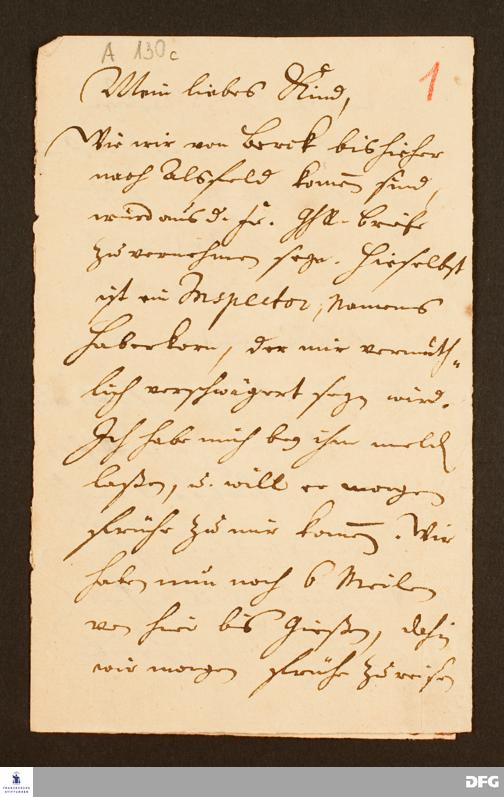 A 130c
1
Mein liebes Kind,
Wie wir von Berck bishieher
nach Alsfeld kom̄en sind,
wird aus d. Fr. Gffl. briefe
zu vernehmen seyn. Hieselbst
ist ein Inspector, Namens
Haberkorn, der mir vermuth-
lich verschwägert seyn wird.
Ich habe mich bey ihm meld
laßen, u. will er morgen
frühe zu mir kom̄en. Wir
haben nun noch 6 Meilen
von hier bis Gießen, dahin
wir morgen frühe zu reisen
FRANCKESCHE
STIFTUNGEN
DFG